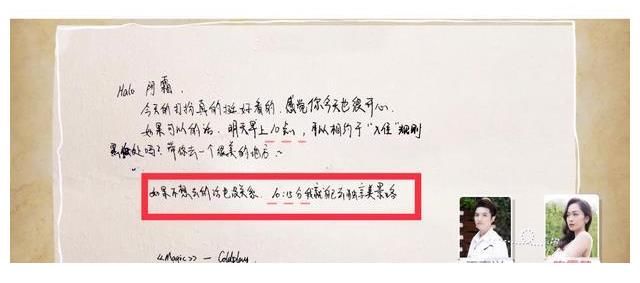 Halo 阿霜，
今天的打扮真的挺好看的，感觉你今天也很开心.
如果可以的话，明天早上10点，可以相约于“入住”规则
处吗？带你去一个很美的地方~
如果不想去的话也没关系，10:15分我就自己前往独享美景咯
《Magic》— Coldplay.